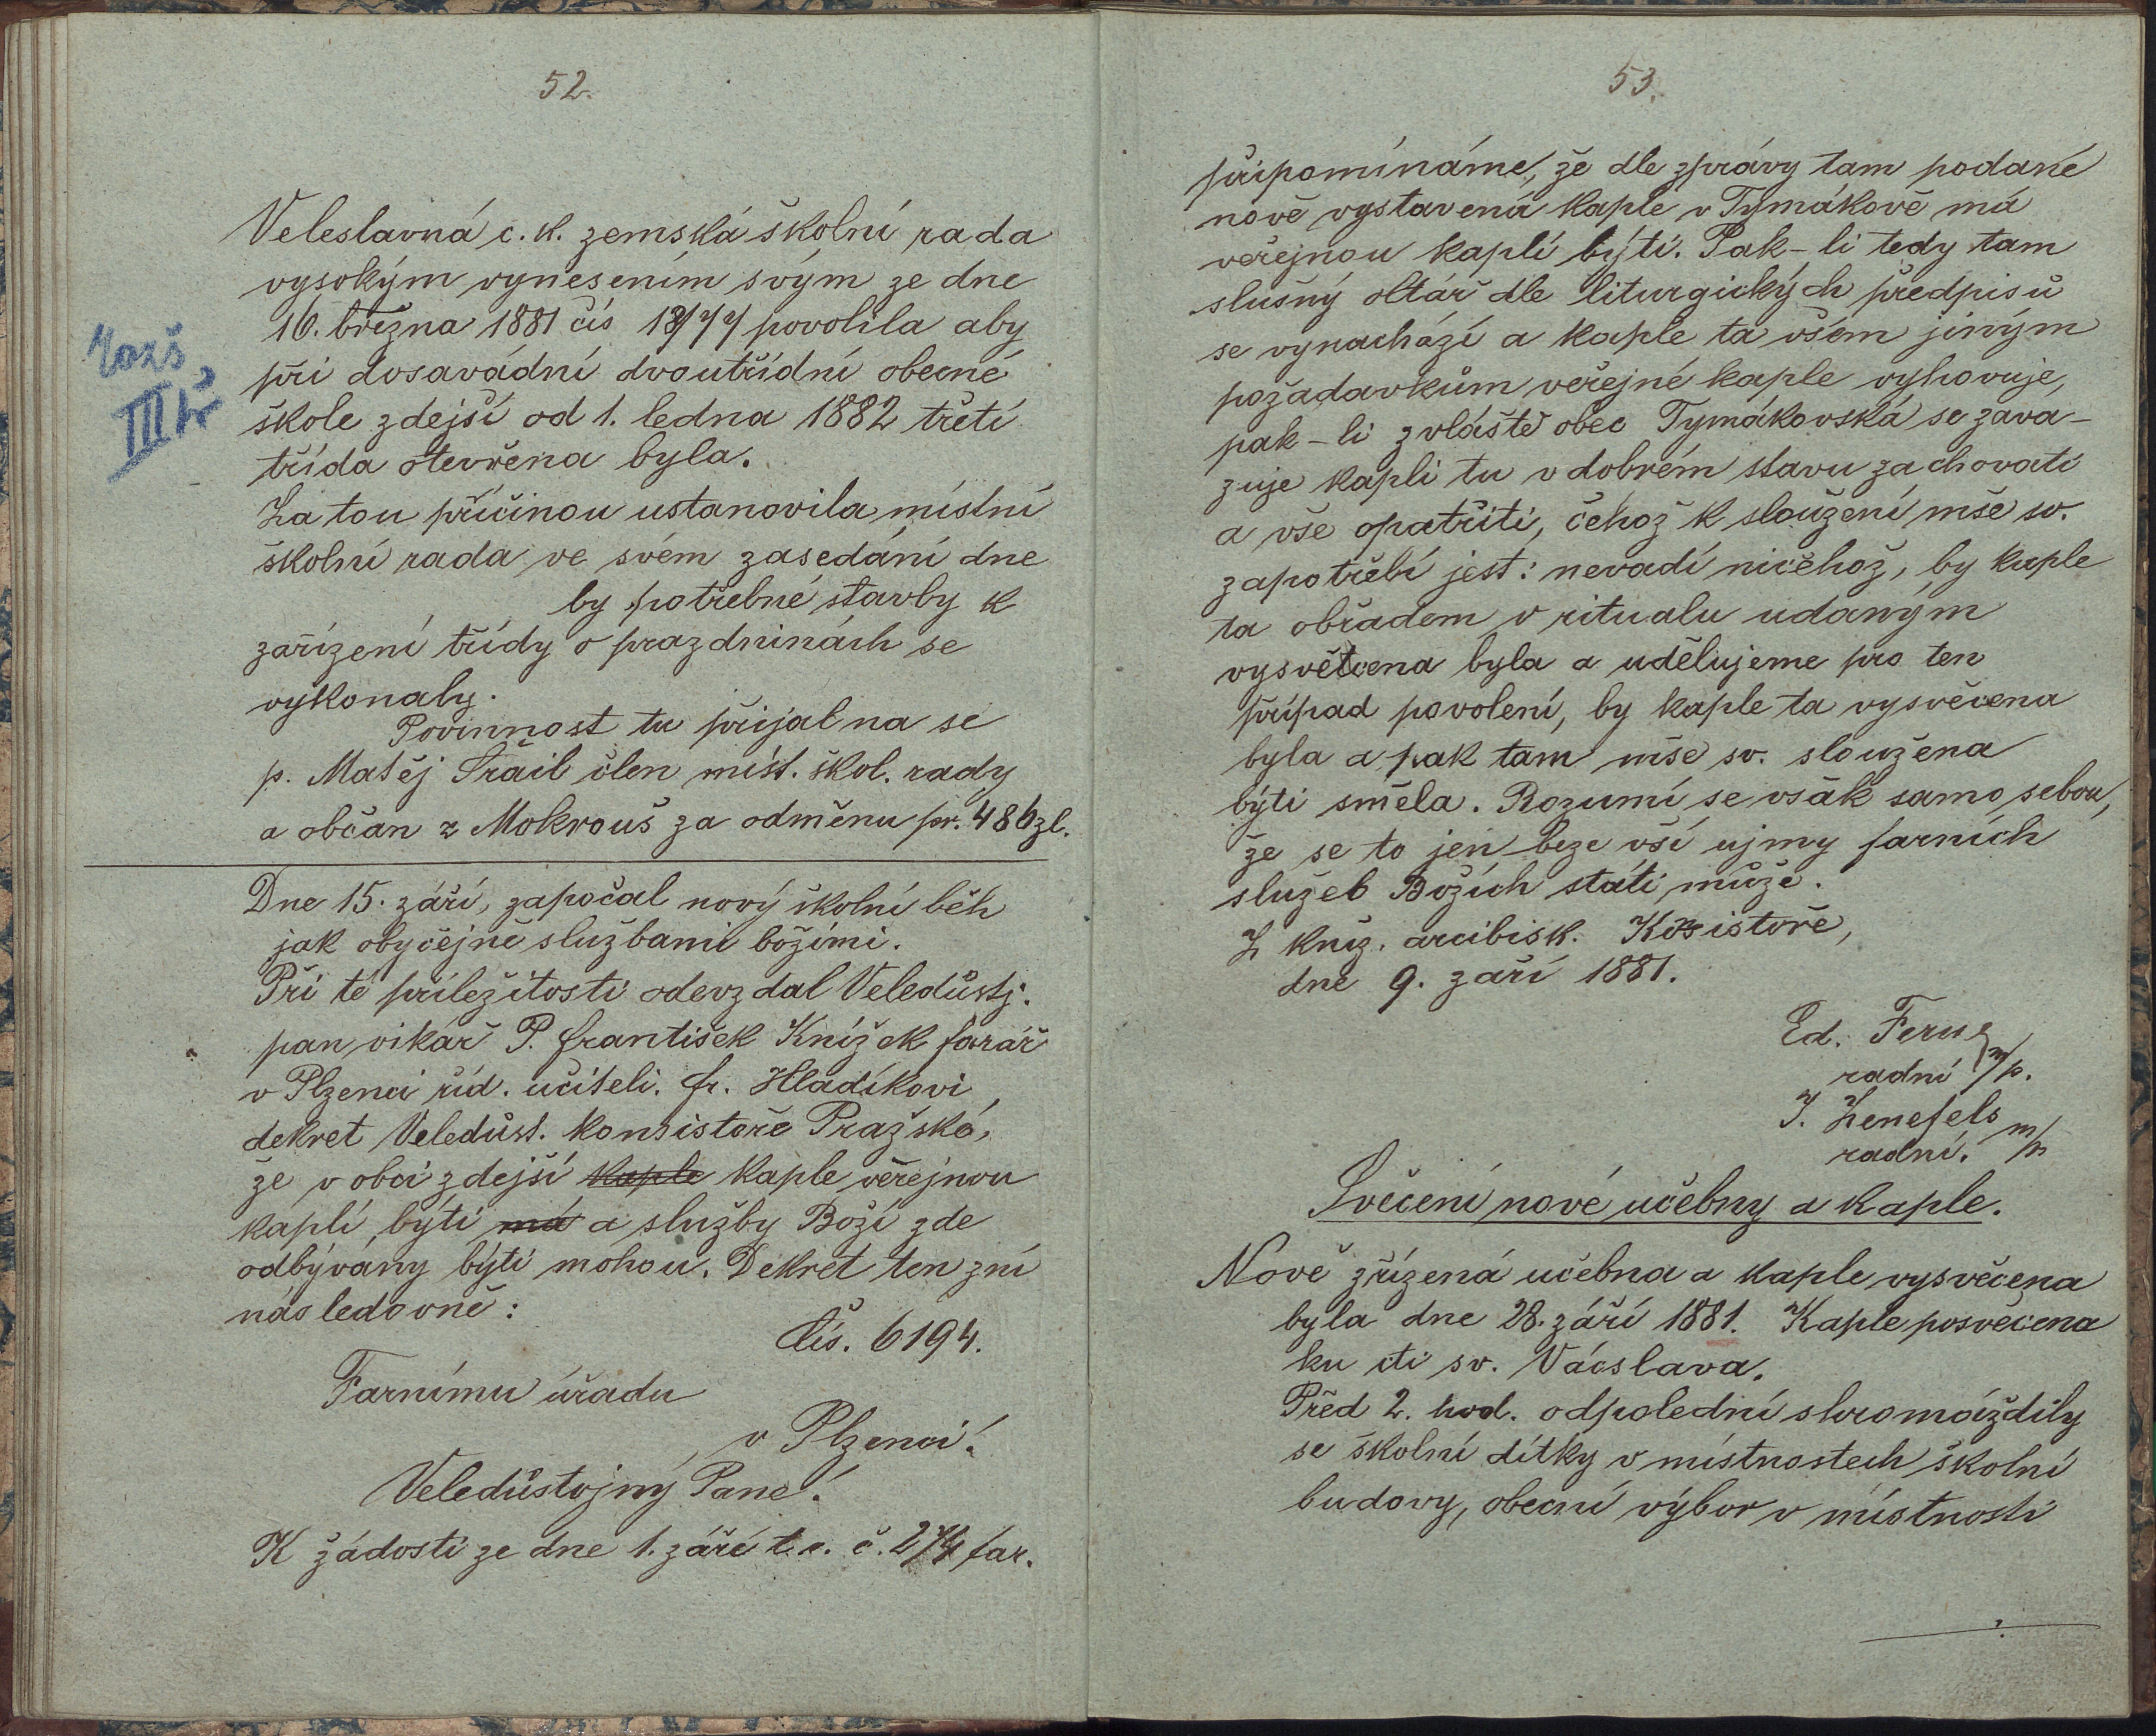 52.
Veleslavná c. k. zemská školní rada
vysokým vynesením svým ze dne
16. března 1881 čís povolila aby
při dosavádní dvoutřídní obecné
škole zdejší od 1. ledna 1882 třetí
třída otevřena byla.
Za tou příčinou ustanovila místní
školní rada ve svém zasedání dne
by potřebné stavby k
zařízení třídy o prazdninách se
vykonaly.
Povinnost tu přijal na se
p. Matěj Trail člen míst. škol. rady
a občan z Mokrouš za odměnu pr. 486 zl.
rozš.
III tř
Dne 15. září, započal nový školní běh
jak obyčejně službami božími.
Při té příležitosti odevzdal Veledůstj.
pan vikář P. František Knížek farář
v Plzenci říd. učiteli. fr. Hladíkovi
dekret Veledůst. konsistoře Pražské,
že v obci zdejší kaple kaple veřejnou
kaplí, býti má a služby Boží zde
odbývány býti mohou. Dekret ten zní
následovně:
Čís. 6194.
Farnímu úřadu
v Plzenci.
Veledůstojný Pane!
K žádosti ze dne 1. září t. r. č. 274 far.
53.
připomínáme, že dle zprávy tam podané
nově vystavená kaple v Tymákově má
veřejnou kaplí býti. Pak-li tedy tam
slušný oltář dle liturgických předpisů
se vynachází a kaple ta všem jiným
požadavkům veřejné kaple vyhovuje,
pak-li zvláště obec Tymákovská se zava-
zuje kapli tu v dobrém stavu zachovati
a vše opatřiti, čehož k sloužení mše sv.
zapotřebí jest: nevadí ničehož, by kaple
ta obřadem v ritualu udaným
vysvěcena byla a udělujeme pro ten
případ povolení, by kaple ta vysvěcena
byla a pak tam mše sv. sloužena
býti směla. Rozumí se však samo sebou,
že se to jen beze vší ujmy farních
služeb Božích státi může.
Z kníž. arcibisk. Kosistoře,
dne 9. září 1881.
Ed. Ferus
radní m/p.
J. Zenefels
radní. m/p
Svěcení nové učebny a kaple.
Nově zřízená učebna a kaple vysvěcena
byla dne 28. září 1881. Kaple posvěcena
ku cti sv. Václava.
Před 2. hod. odpolední shromáždily
se školní dítky v místnostech školní
budovy, obecní výbor v místnosti